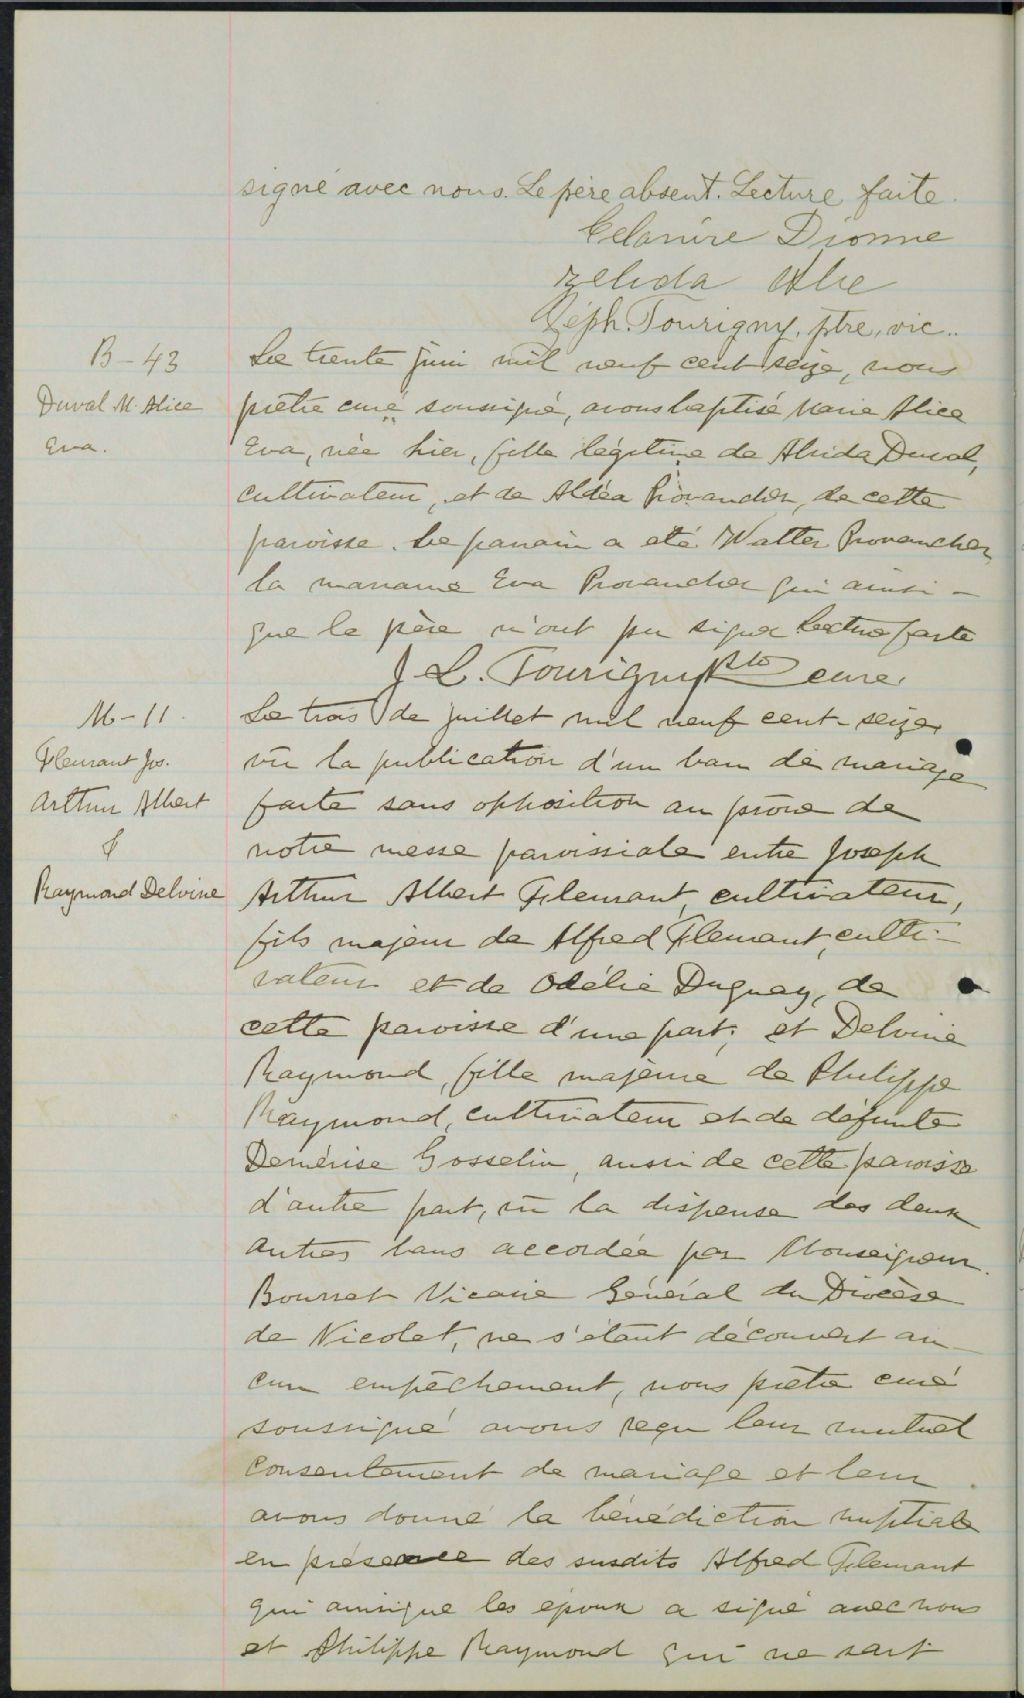 signé avec nous. Le père absent. Lecture faite.
Celanire Dionne
Zelida Alie
Zéph. Tourigny, ptre, vic..
B-43
Duval M. Alice
Eva.
Le trente juin mil neuf cent seize, nous
prêtre curé soussigné, avons baptisé Marie Alice
Eva, née hier, fille légitime de Alida Duval,
cultivateur, et de Aldéa Provancher, de cette
paroisse. Le parrain a été Walter Provancher
la marraine Eva Provancher qui ainsi -
que le père n'ont pu signer Lecture faite
J. L. Tourigny Ptre curé.
M-11.
Fleurant Jos.
Arthur Albert
&
Raymond Delvine
Le trois de juillet mil neuf cent-seize,
vu la publication d'un ban de mariage
faite sans opposition au prône de
notre messe paroissiale entre Joseph
Arthur Albert Fleurant, cultivateur,
fils majeur de Alfred Fleurant, culti-
vateur et de Odélie Duguay, de
cette paroisse d'une part; et Delvine
Raymond, fille majeure de Philippe
Raymond, cultivateur et de défunte
Demérise Gosselin, aussi de cette paroisse
d'autre part, vu la dispense des deux
autres bans accordée par Monseigneur
Bourret Vicaire Général du Diocèse
de Nicolet, ne s'étant découvert au-
cun empêchement, nous prêtre curé
soussigné avons reçu leur mutuel
consentement de mariage et leur
avons donné la bénédiction nuptiale
en présence des susdits Alfred Fleurant
qui ainsi que les époux a signé avec nous
et Philippe Raymond qui ne sait